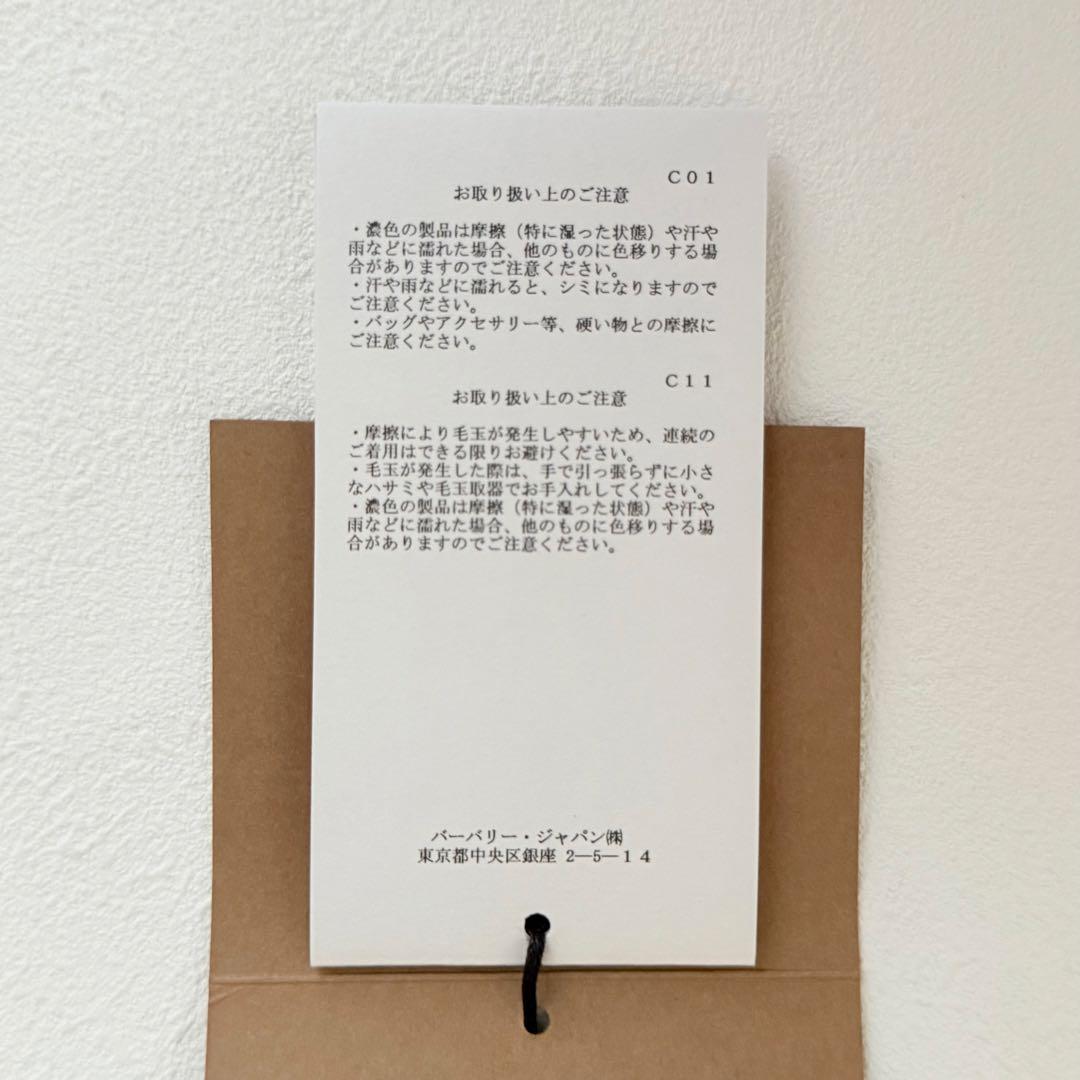 C01
お取り扱い上のご注意
・濃色の製品は摩擦（特に湿った状態）や汗や
雨などに濡れた場合、他のものに色移りする場
合がありますのでご注意ください。
・汗や雨などに濡れると、シミになりますので
ご注意ください。
・バッグやアクセサリー等、硬い物との摩擦に
ご注意ください。
C11
お取り扱い上のご注意
・摩擦により毛玉が発生しやすいため、連続の
ご着用はできる限りお避けください。
・毛玉が発生した際は、手で引っ張らずに小さ
なハサミや毛玉取器でお手入れしてください。
・濃色の製品は摩擦（特に湿った状態）や汗や
雨などに濡れた場合、他のものに色移りする場
合がありますのでご注意ください。
バーバリー・ジャパン㈱
東京都中央区銀座 2—5—14